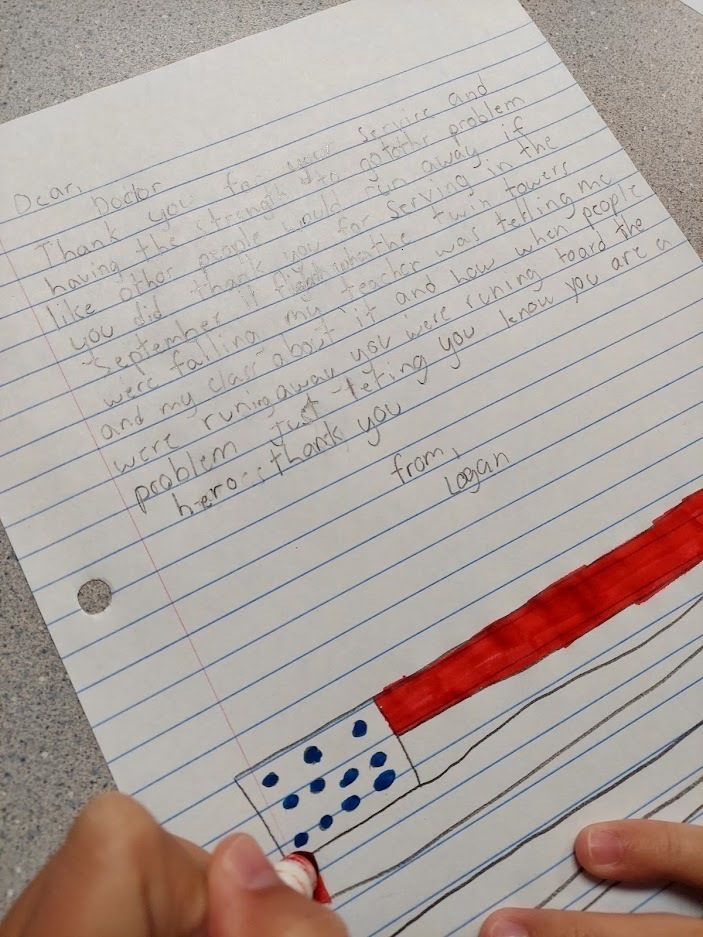 Dear,
Doctor
Thank you for your service and
having the strength to go to the problem
like other people would run away if
you did thank you for serving in the
September 11 the twin towers
were falling my teacher was telling me
and my class about it and how when people
were runing away you were runing toard the
problem just teling you know you are a
heroes thank you
from,
Logan